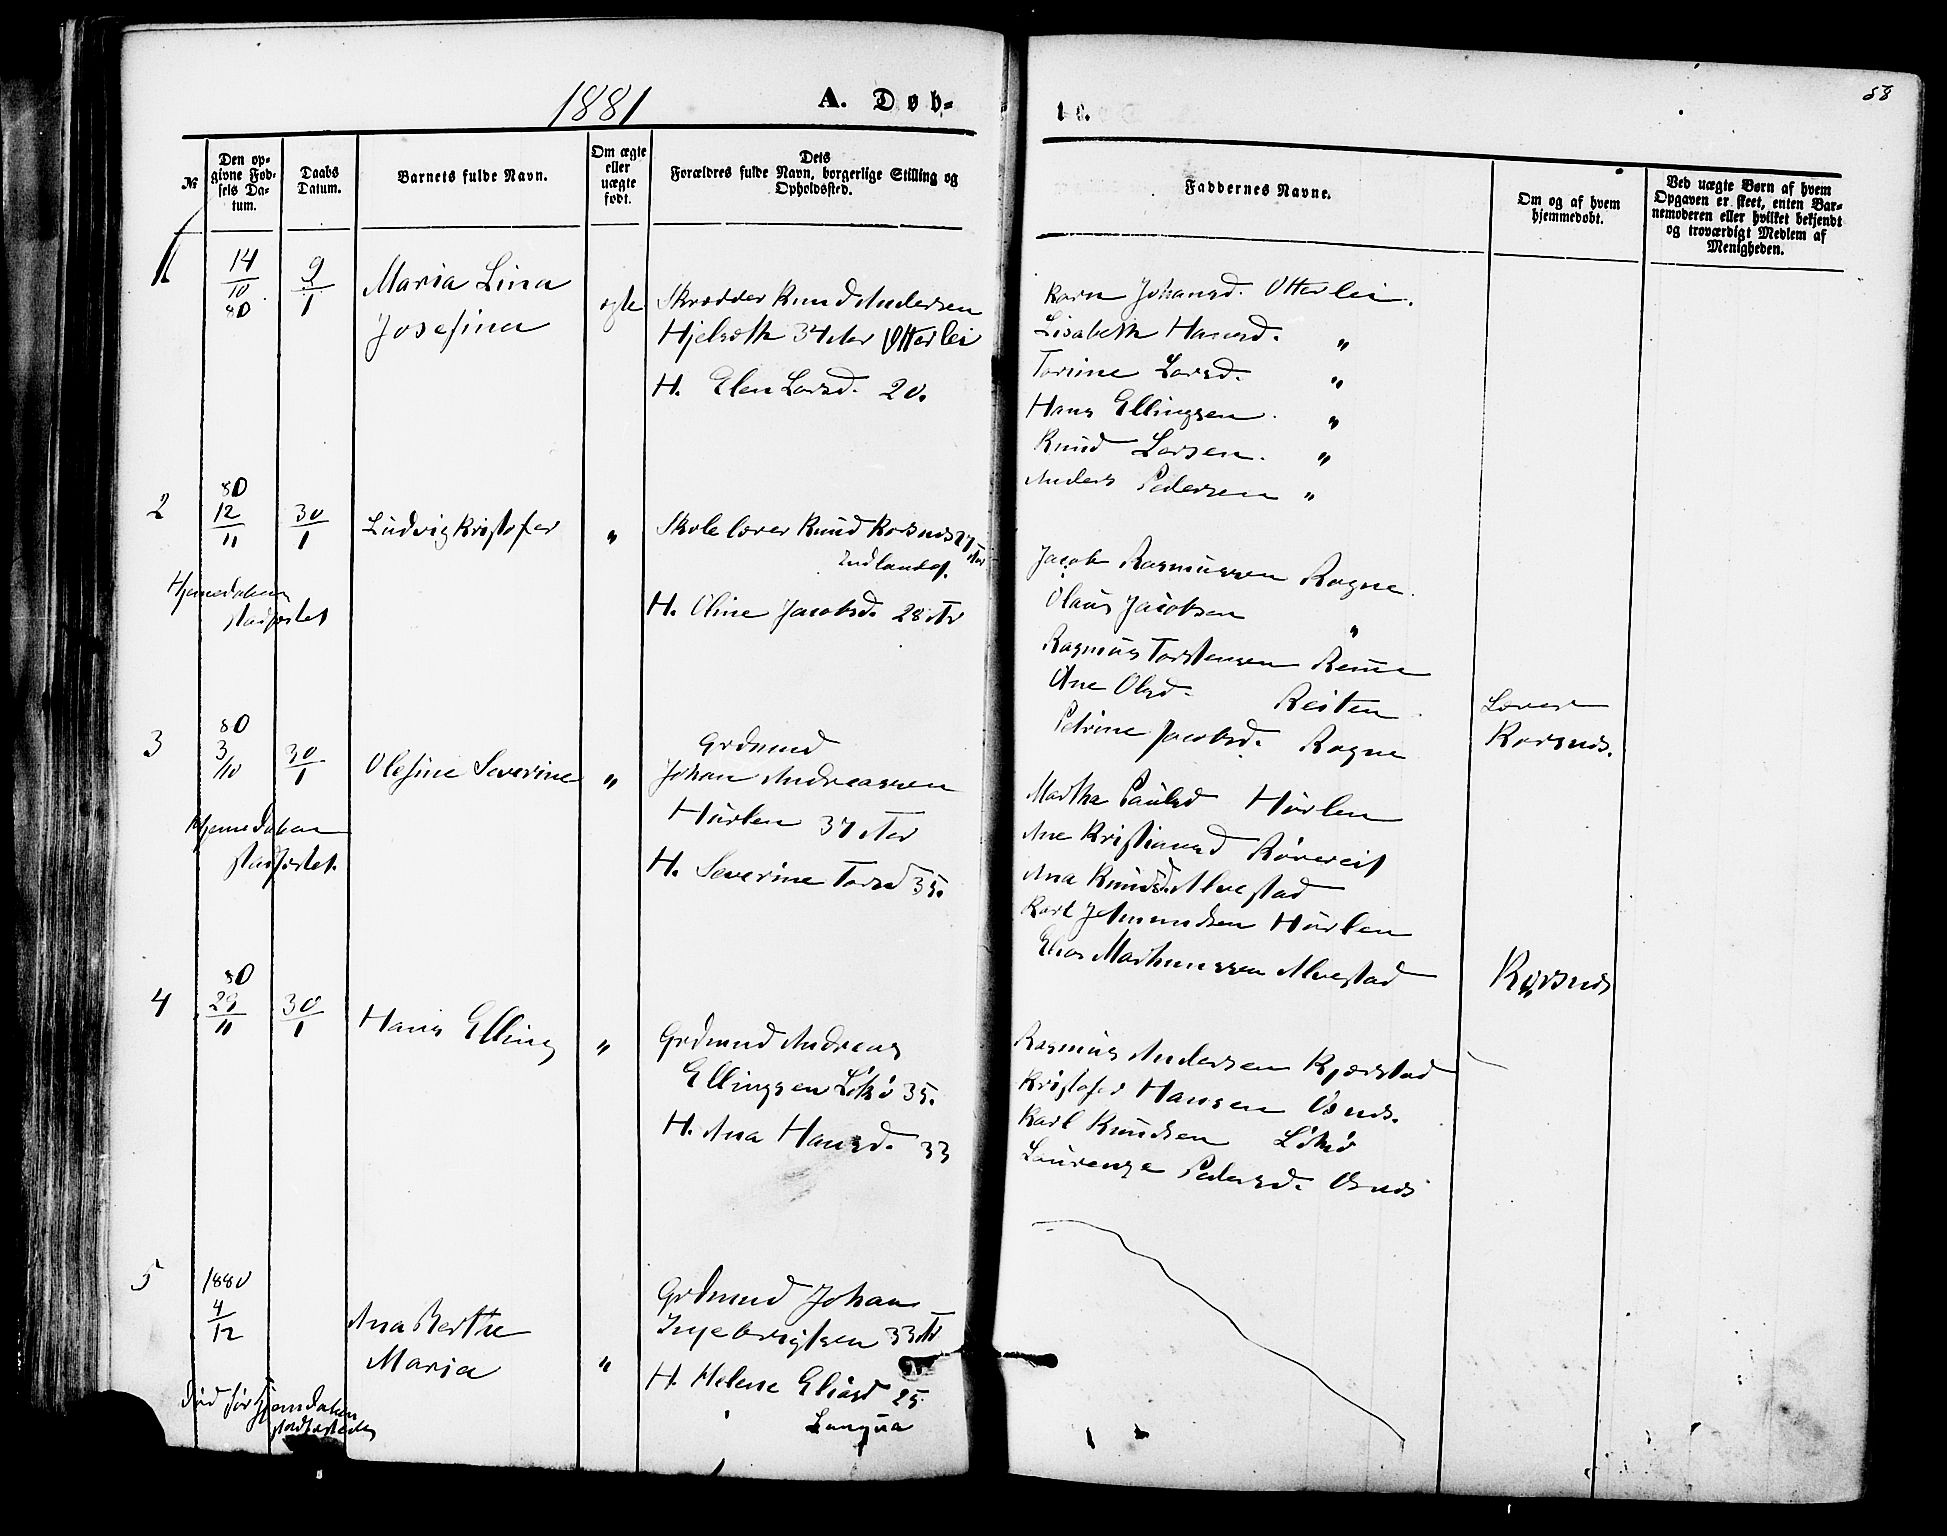 1881
A. Døb-
te.
58
№
Den op-
givne Fød-
sels Da-
tum.
Daabs
Datum.
Barnets fulde Navn.
Om ægte
eller
uægte
født.
Dets
Forældres fulde Navn, borgerlige Stilling og
Opholdssted.
Faddernes Navne.
Om og af hvem
hjemmedøbt.
Ved uægte Børn af hvem
Opgaven er skeet, enten Bar-
nemoderen eller hvilket bekjendt
og troværdigt Medlem af
Menigheden.
1
14/10 80
9/1
Maria Lina
Josefina
ægte
Skrædder Knud Andersen
Hjelseth 34 Aar Otterlei
H. Elen Larsd. 20.
Karn Johansd. Otterlei.
Lisabeth Hansd. "
Torine Larsd. "
Hans Ellingsen. "
Knud Larsen. "
Anders Pedersen "
2
80
12/11
30/1
Ludvig Kristofer
"
Skolelærer Knud Korsnæs 27 Aar
H. Oline Jacobsd. 28 Aar
Hjemedaaben
stadfæstet
Jacob Rasmussen Rogne
Olaus Jacobsen "
Rasmus Torstensen
Ane Olsd. Reiten
Petrine Jacobsd. Rogne
Lærer
Korsnæs.
3
80
3/10
30/1
Olefine Severine
"
Grdmnd
Johan Andreassen
Hurlen 37 Aar
H. Severine Torsd 35.
Hjemedaaben
stadfæstet.
Martha Paulsd Hurlen
Ane Kristiansd
Ana Knudsd. Alvestad
Karl Amundsen Hurlen
Elias Mathiassen Alvestad
Korsnæs
4
80
29/11
30/1
Hans Elling
"
Grdmnd Andreas
Ellingsen Löhö 35.
H. Ana Hansd. 33
Rasmus Andersen Kjerstad
Kristofer Hansen Osnæs.
Karl Knudsen Löhö
Laurense Pedersd. Osnæs
5
1880
4/12
Ana Berthe
Maria
"
Grdmnd Johan
Ingebrigtsen 33 Aar
H. Helene Eliasd 25
Langva
Död för Hjemdaaben
stadfæstedes